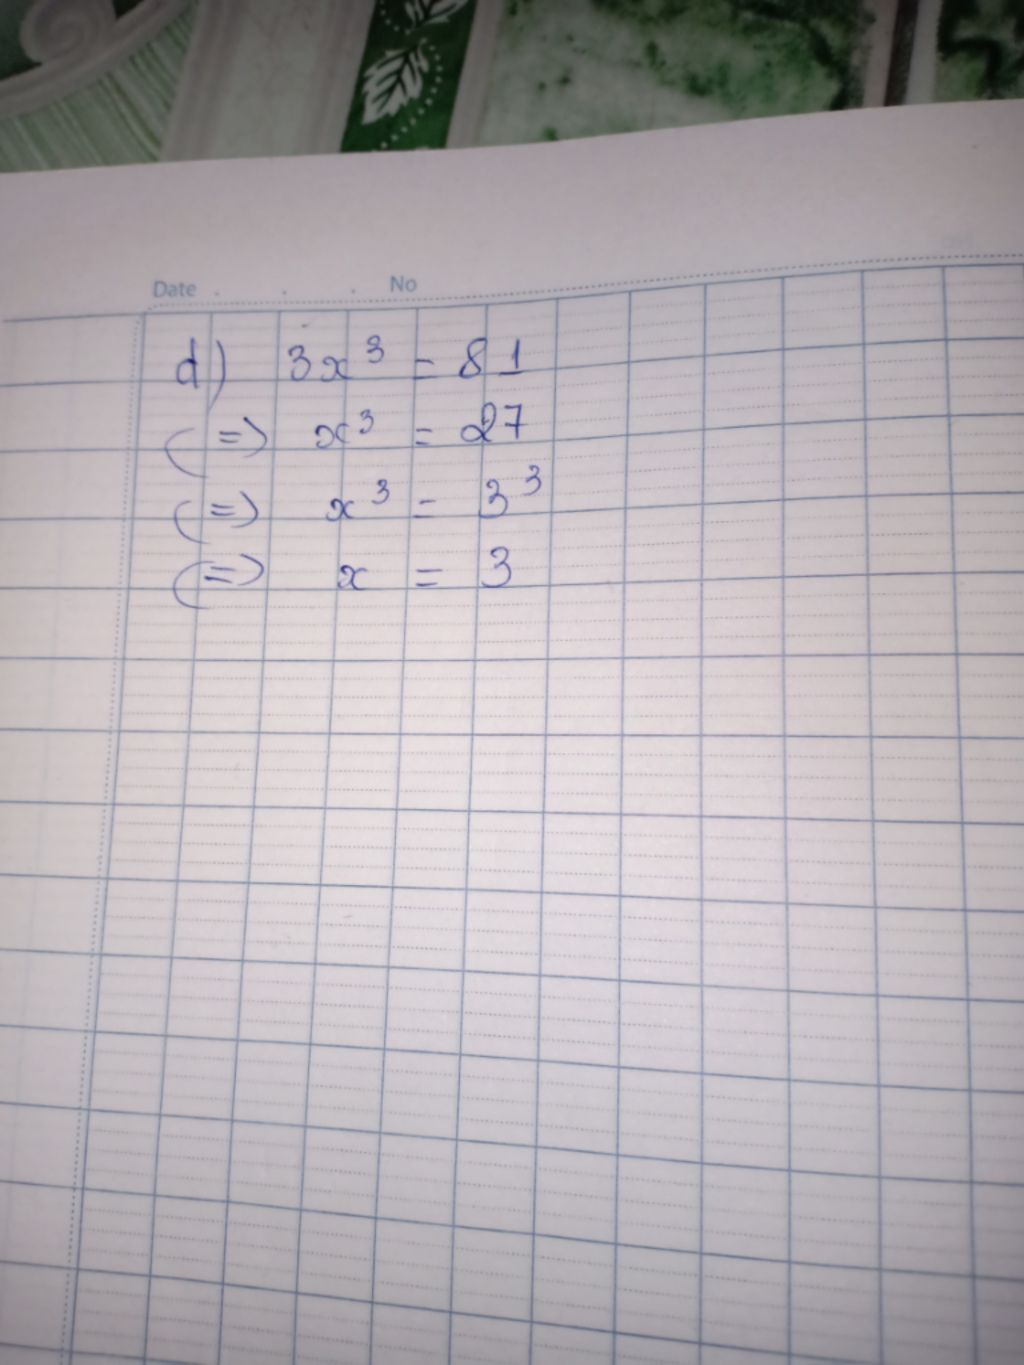 Date . . . No
d) 3x³ = 81
(=) x³ = 27
(=) x³ = 3³
(=) x = 3